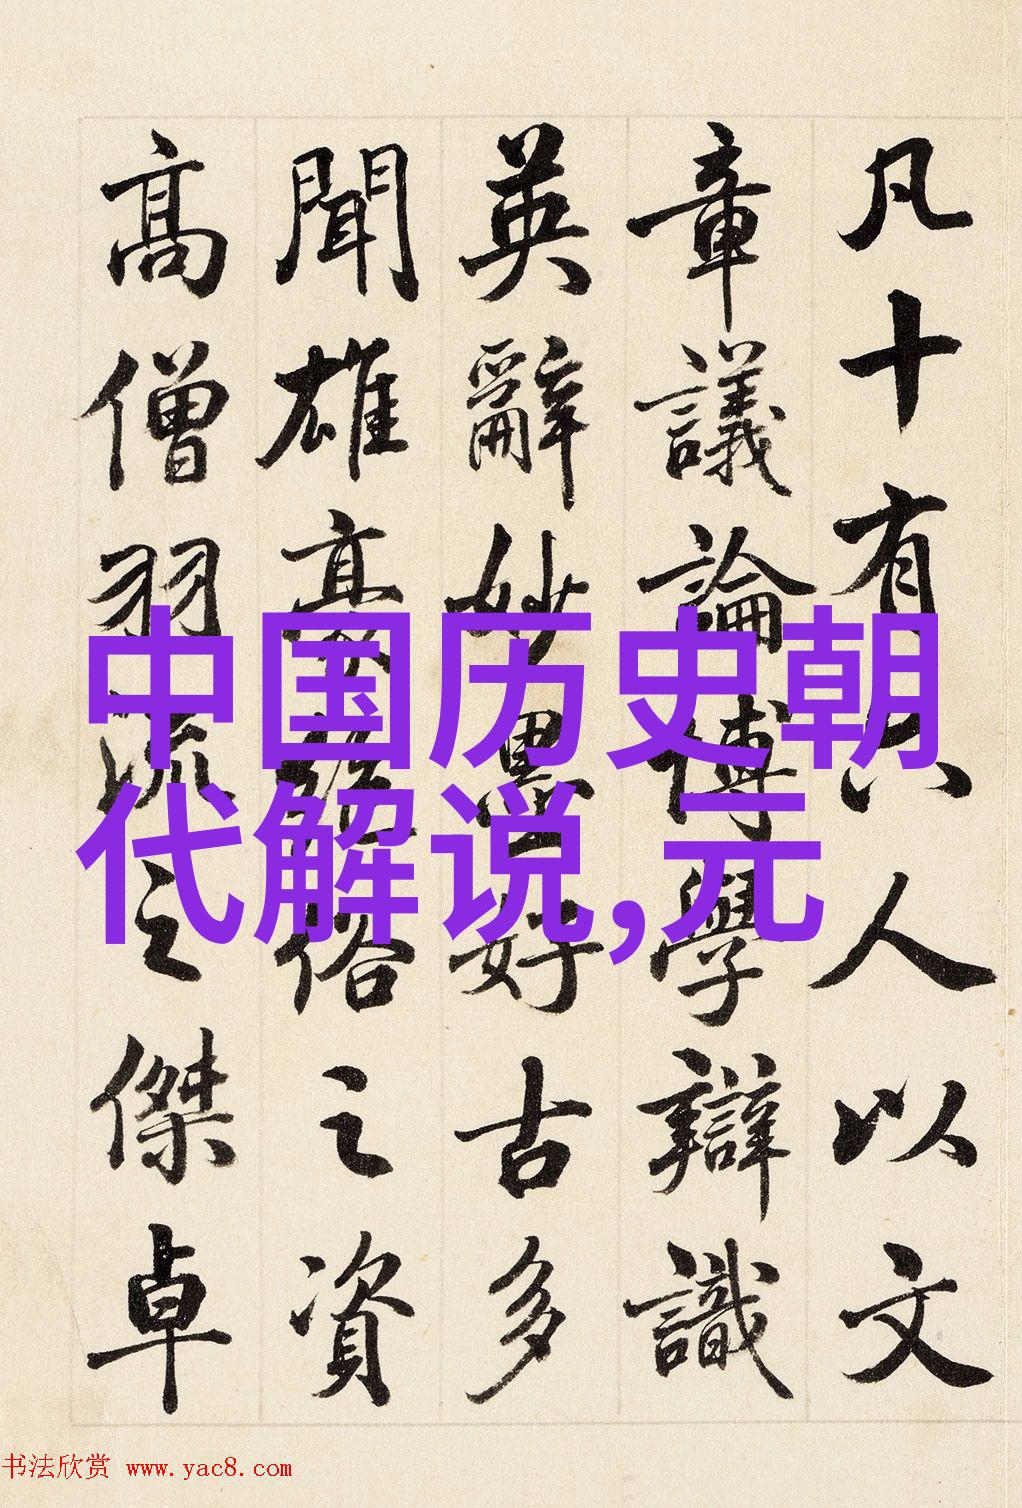 凡十有六人以文
章議論博學辯識
英辭妙墨好古多
聞雄豪絕俗之資
高僧羽流之傑卓
中国历史朝
代解说,元
书法欣赏 www.yac8.com